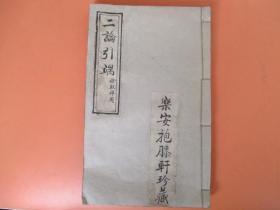 二論引端
樂安抱膝軒珍藏